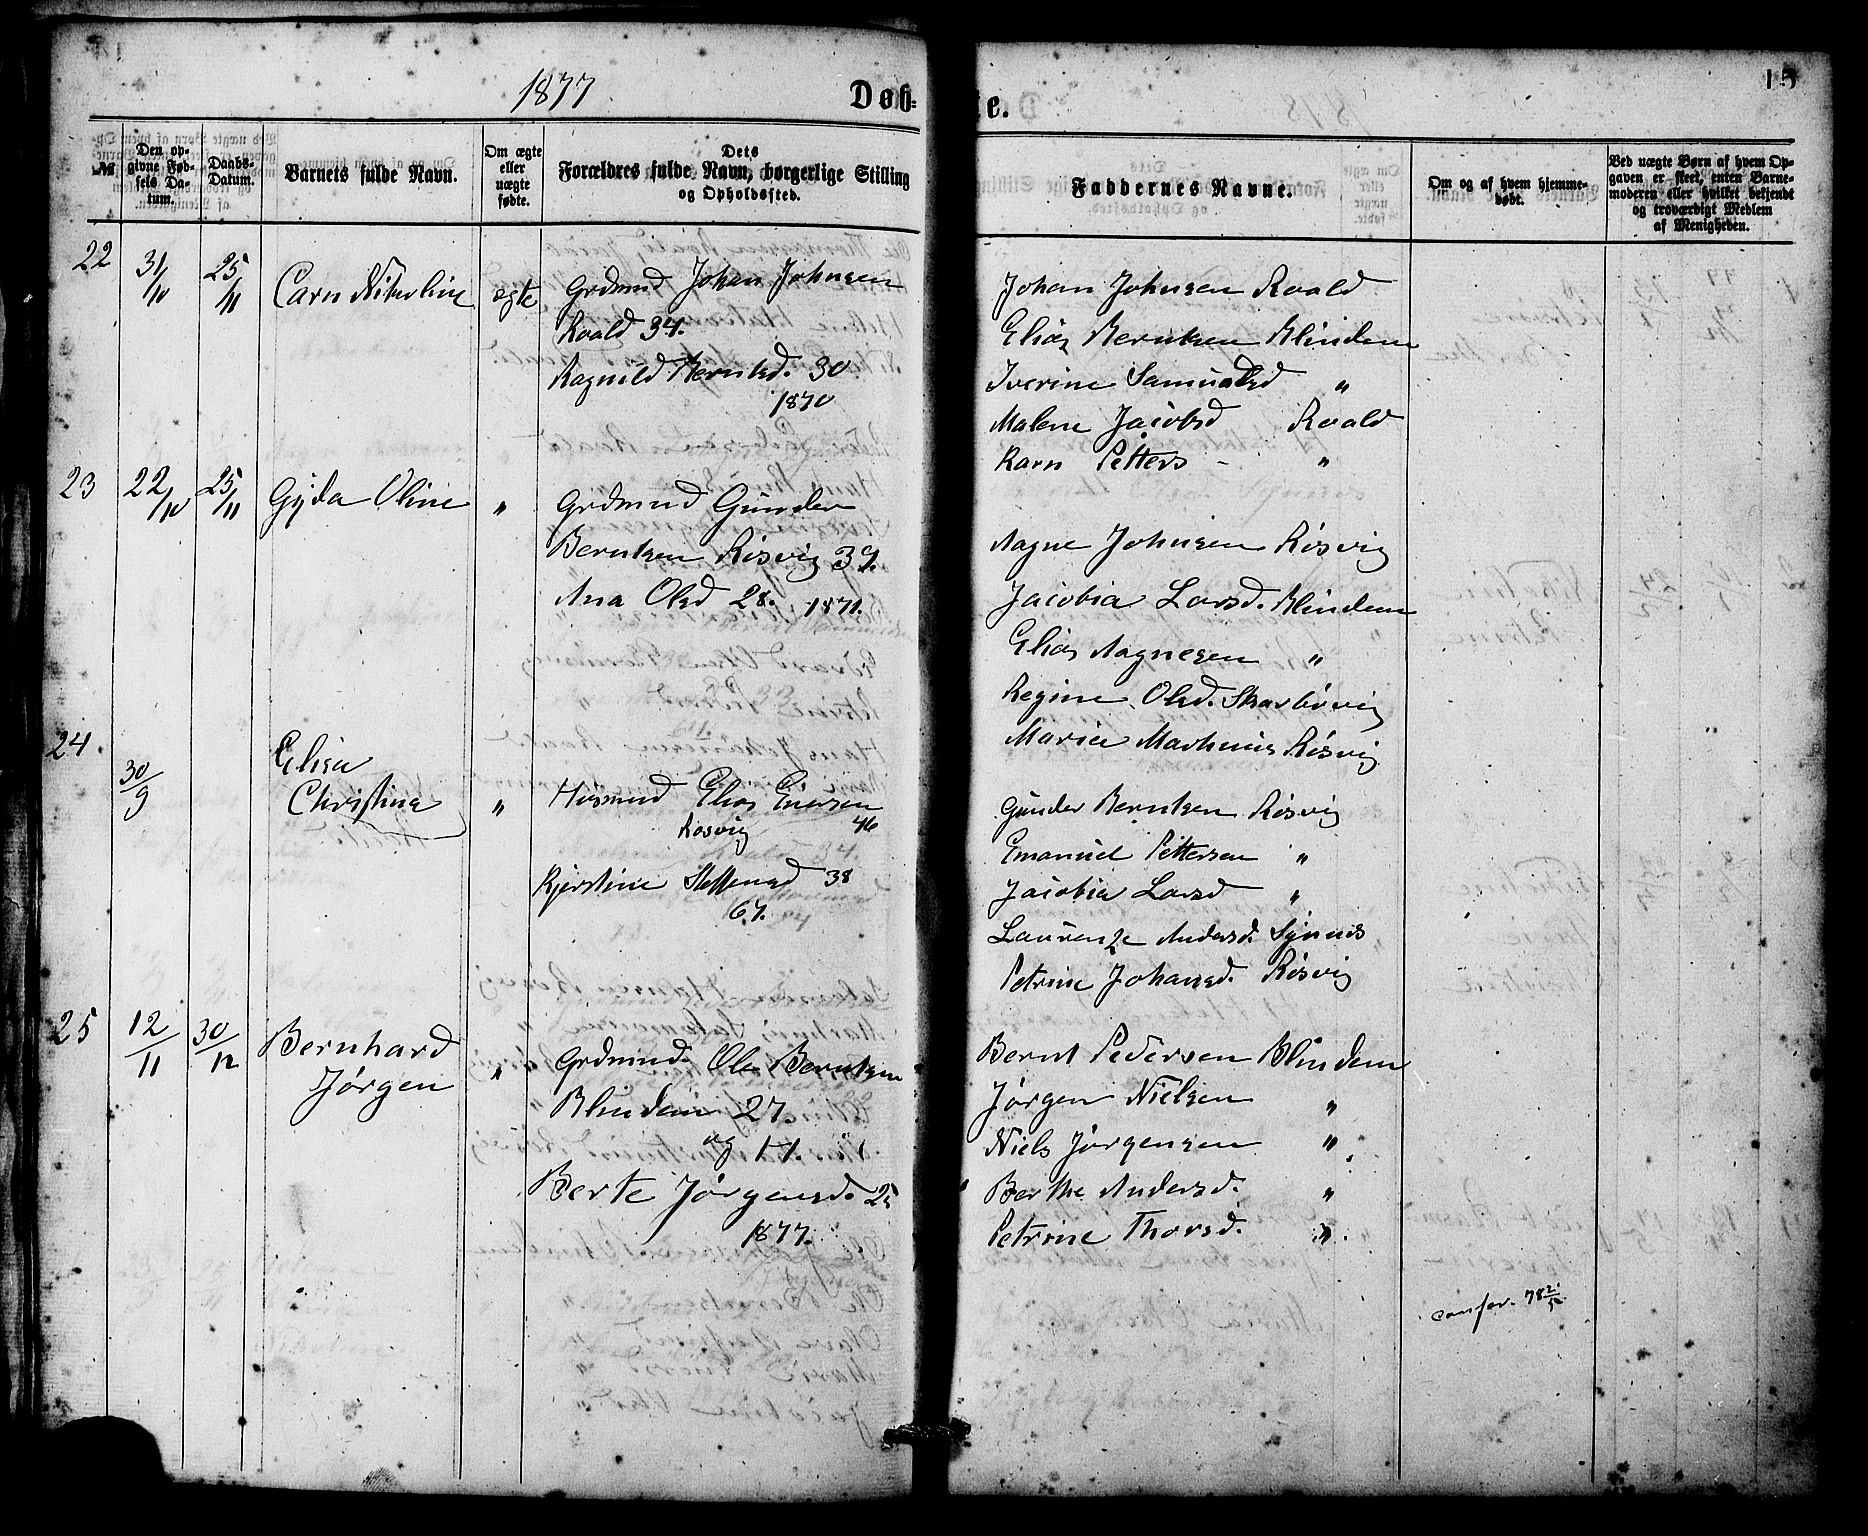 1877
Døb-
te.
15
№
Den op-
givne Fød-
sels Da-
tum.
Daabs-
Datum.
Barnets fulde Navn.
Om ægte
eller
uægte
fødte.
Dets
Forældres fulde Navn, borgerlige Stilling
og Opholdssted.
Faddernes Navne.
Om og af hvem hjemme-
døbt.
Ved uægte Børn af hvem Op-
gaven er skeet, enten Barne-
moderen eller hvilket bekjendt
og troværdigt Medlem
af Menigheden.
22 31/10 25/11 Carn Nikoline ægte Grdmnd Johan Johnsen
Roald 34.
Ragnild Berntsd. 30
1870
Johan Johnsen Roald
Elias Berntsen Blindem
Iverine Samuelsd "
Malene Jacobsd Roald
Karn Petters - "
23 22/10 25/11 Gyda Oline " Grdmnd Gunder
Berntsen Røsvig 39.
Ana Olsd 28. 1871.
Aagne Johnsen Røsvig
Jacobia Larsd. Blindem
Elias Aagnesen "
Regine Olsd. Skarbøvig
Maria Markus Røsvig
24. 30/9 Elisa
Christina " Husmnd Elias Einersen
Røsvig 46
Kjerstine Steffensd 38
67.
Gunder Berntsen Røsvig
Emanuel Pettersen "
Jacobia Larsd "
Laurenze Andersd. Synnes
Petrine Johansd. Røsvig
25 12/11 30/12 Bernhard
Jørgen " Grdmnd. Ole Berntsen
Blindem 27
og H.
Berte Jørgensd. 25
1877.
Bernt Pedersen Blindem
Jørgen Nielsen "
Niels Jørgensen "
Berthe Andersd. "
Petrine Thorsd. "
confer. 78 2/5